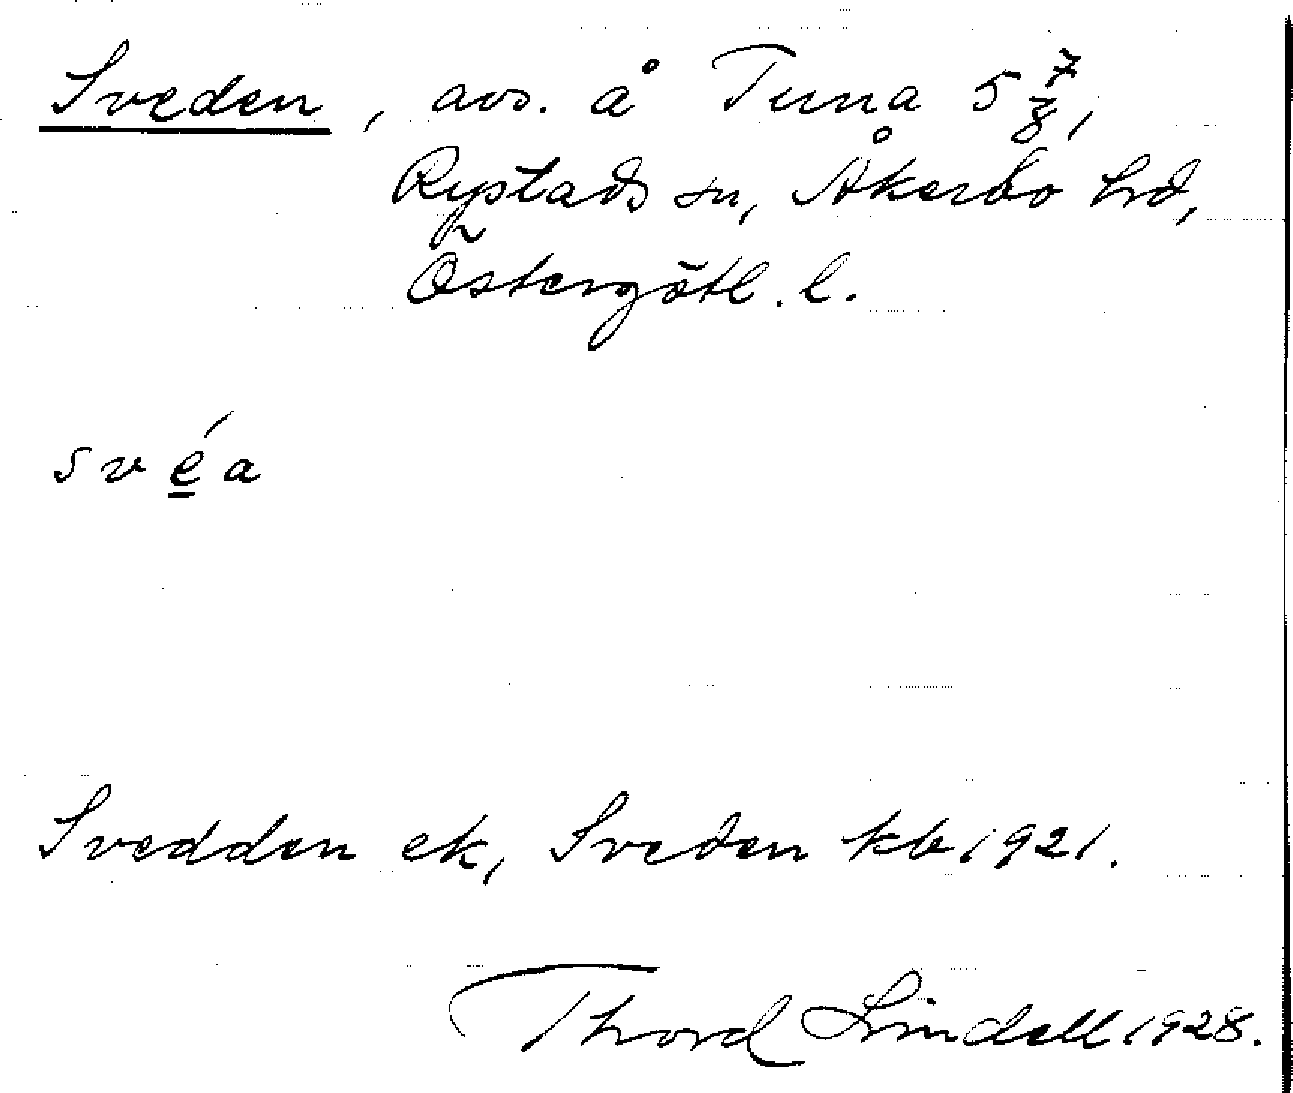 Sveden, avs. å Tuna 5 7/8,
Rystads sn, Åkerbo hd,
Östergötl. l.
svéa
Svedden ek, Sveden kb 1921.
Thord Lindell 1928.